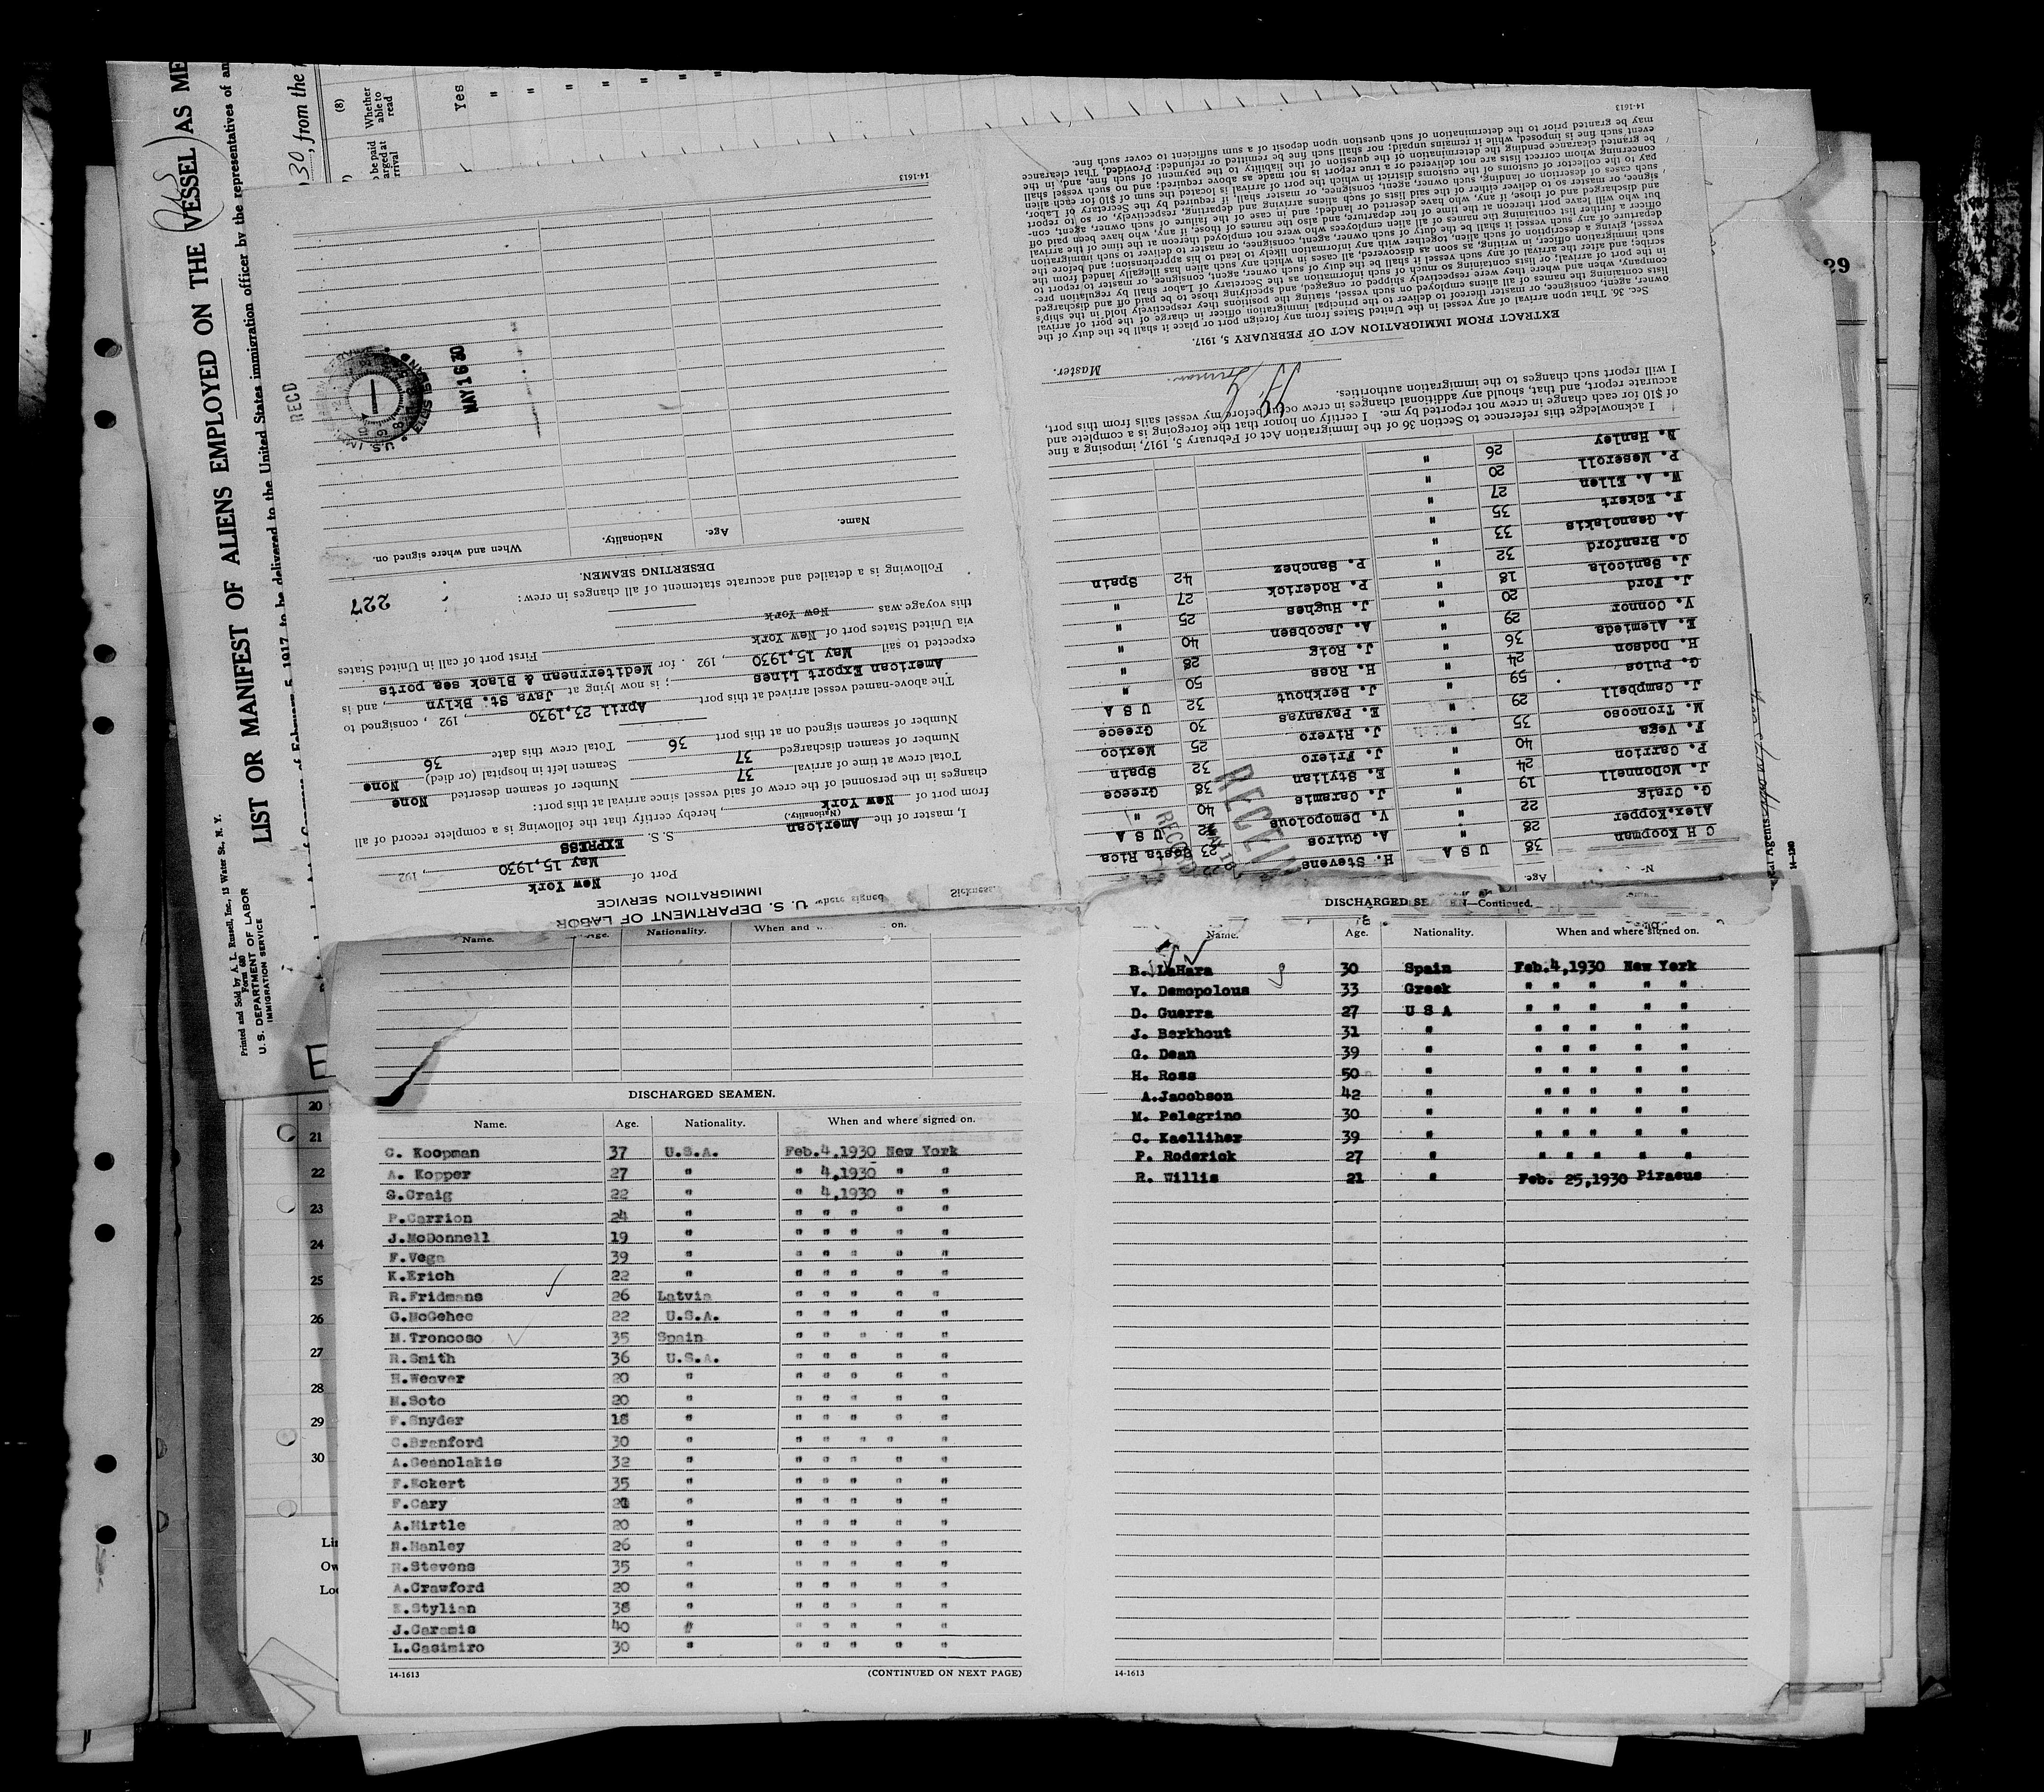 LIST OR MANIFEST OF ALIENS EMPLOYED ON THE VESSEL AS ME
to be delivered to the United States immigration officer by the representatives of an
Printed and Sold by A. L. Russell, Inc., 13 Water St., N. Y.
Form 680
U. S. DEPARTMENT OF LABOR
IMMIGRATION SERVICE
30, from the
(8)
Whether able to read
Yes
"
"
"
"
"
"
RECD
29
U. S. DEPARTMENT OF LABOR
IMMIGRATION SERVICE
Port of New York
May 15,1930, 192
S. S. EXPRESS
I, master of the American
(Nationality.)
from port of New York, hereby certify that the following is a complete record of all
changes in the personnel of the crew of said vessel since arrival at this port:
Total crew at time of arrival 37 Number of seamen deserted None
Number of seamen discharged 37 Seamen left in hospital (or died) None
Number of seamen signed on at this port 36 Total crew this date 36
The above-named vessel arrived at this port April 23,1930, 192 , consigned to
American Export Lines; is now lying at Java St. Bklyn, and is
expected to sail May 15,1930, 192 . for Mediterrnean & Black sea ports
via United States port of New York First port of call in United States
this voyage was New York
Following is a detailed and accurate statement of all changes in crew:
227
DESERTING SEAMEN.
Name. Age. Nationality. When and where signed on.
MAY 16 30
14-1613
C H Koopman 38 U S A
Alex.Kopper 28 "
G. Craig 22 "
J. McDonnell 19 "
P. Carrion 24 "
F. Vega 40 "
M. Troncoso 35 "
J. Campbell 29 "
G. Pulos 59 "
H. Dodson 24 "
E. Alemieda 36 "
V. Connor 29 "
J. Ford 20 "
J. Sanicola 18 "
C. Branford 32 "
A. Geanolakis 33 "
F. Eckert 35 "
W. A. Ellen 27 "
P. Meseroll 20 "
N. Hanley 26 "
H. Stevens
A. Guiros 23 Costa Rica
V. Demopolous 32 U S A
J. Caramis 40 "
E. Stylian 38 Greece
J. Friero 32 Spain
J. Rivero 25 Mexico
E. Pavanyas 30 Greece
J. Berkhout 32 U S A
H. Ross 50 "
J. Roig 28 "
A. Jacobsen 40 "
J. Hughes 25 "
P. Roderick 27 "
P. Sanchez 42 Spain
I acknowledge this reference to Section 36 of the Immigration Act of February 5, 1917, imposing a fine
of $10 for each change in crew not reported by me. I certify on honor that the foregoing is a complete and
accurate report, and that, should any additional changes in crew occur before my vessel sails from this port,
I will report such changes to the immigration authorities.
Master.
EXTRACT FROM IMMIGRATION ACT OF FEBRUARY 5, 1917.
Sec. 36. That upon arrival of any vessel in the United States from any foreign port or place it shall be the duty of the
owner, agent, consignee, or master thereof to deliver to the principal immigration officer in charge of the port of arrival
lists containing the names of all aliens employed on such vessel, stating the positions they respectively hold in the ship's
company, when and where they were respectively shipped or engaged, and specifying those to be paid off and discharged
in the port of arrival; or lists containing so much of such information as the Secretary of Labor shall by regulation pre-
scribe; and after the arrival of any such vessel it shall be the duty of such owner, agent, consignee, or master to report to
such immigration officer, in writing, as soon as discovered, all cases in which any such alien has illegally landed from the
vessel, giving a description of such alien, together with any information likely to lead to his apprehension; and before the
departure of any such vessel it shall be the duty of such owner, agent, consignee, or master to deliver to such immigration
officer a further list containing the names of all alien employees who were not employed thereon at the time of the arrival
but who will leave port thereon at the time of her departure, and also the names of those, if any, who have been paid off
and discharged, and of those, if any, who have deserted or landed; and in case of the failure of such owner, agent, con-
signee, or master so to deliver either of the said lists of such aliens arriving and departing, respectively, or so to report
such cases of desertion or landing, such owner, agent, consignee, or master shall, if required by the Secretary of Labor,
pay to the collector of customs of the customs district in which the port of arrival is located the sum of $10 for each alien
concerning whom correct lists are not delivered or a true report is not made as above required; and no such vessel shall
be granted clearance pending the determination of the question of the liability to the payment of such fine, and, in the
event such fine is imposed, while it remains unpaid; nor shall such fine be remitted or refunded: Provided, That clearance
may be granted prior to the determination of such question upon deposit of a sum sufficient to cover such fine.
14-1613
Name. Age. Nationality. When and on.
DISCHARGED SEAMEN.
Name. Age. Nationality. When and where signed on.
C. Koopman 37 U.S.A. Feb.4,1930 New York
A. Kopper 27 " " 4,1930 " "
G.Craig 22 " " 4,1930 " "
P.Carrion 24 " " " " " "
J.McDonnell 19 " " " " " "
F.Vega 39 " " " " " "
K.Erich 22 " " " " " "
R.Fridmans 26 Latvia " " " " "
G.McGehee 22 U.S.A. " " " " "
M.Troncoso 35 Spain " " " " "
R.Smith 36 U.S.A. " " " " "
H.Weaver 20 " " " " " "
M.Soto 20 " " " " " "
F.Snyder 18 " " " " " "
C.Branford 30 " " " " " "
A.Geanolakis 32 " " " " " "
F.Eckert 35 " " " " " "
F.Cary " " " " " "
A.Hirtle 20 " " " " " "
N.Hanley 26 " " " " " "
H.Stevens 35 " " " " " "
A.Crawford 20 " " " " " "
E.Stylian 38 " " " " " "
J.Caramis 40 " " " " " "
L.Casimiro 30 " " " " " "
14-1613 (CONTINUED ON NEXT PAGE)
DISCHARGED SE N—Continued.
Name. Age. Nationality. When and where signed on.
B. LaHara 30 Spain Feb.4,1930 New York
V. Demopolous 33 Greek " " " " "
D. Guerra 27 U S A " " " " "
J. Berkhout 31 " " " " " "
G. Dean 39 " " " " " "
H. Ross 50 " " " " " "
A.Jacobson 42 " " " " " "
M. Pelegrino 30 " " " " " "
C. Kaelliher 39 " " " " " "
P. Roderick 27 " " " " " "
R. Willis 21 " Feb. 25,1930 Piraeus
14-1613
20
21
22
23
24
25
26
27
28
29
30